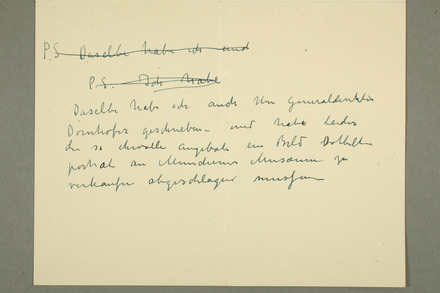 P.S. Daselbe habe ich auch
P.S. Ich habe
Daselbe habe ich auch Hrn Generaldirektor
Dörnhöfer geschrieben und habe leider
die so ehrvolle Angebote ein Bild
portrait an Münchener Museum zu
verkaufen abgeschlagen müssen